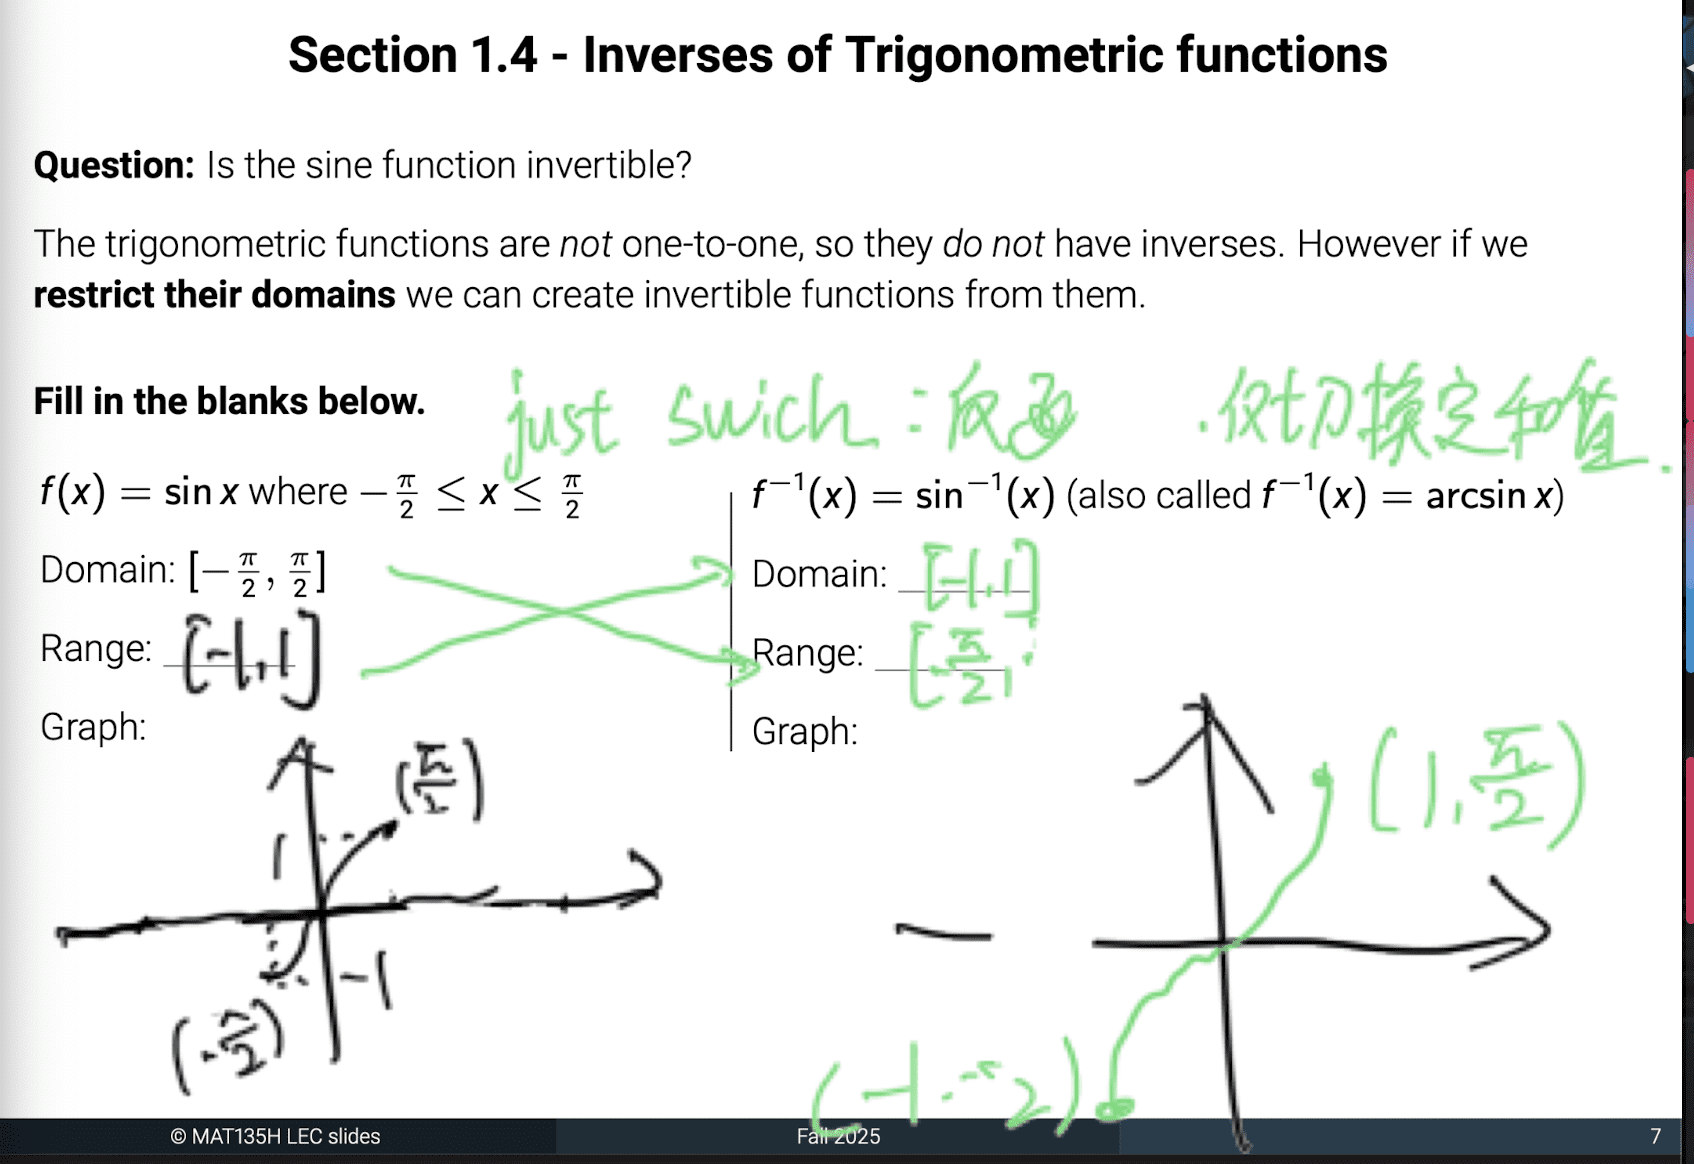 Section 1.4 - Inverses of Trigonometric functions
Question: Is the sine function invertible?
The trigonometric functions are not one-to-one, so they do not have inverses. However if we
restrict their domains we can create invertible functions from them.
Fill in the blanks below.
just swich : 反函 . 仅切换定和值.
f(x) = sin x where −π/2 ≤ x ≤ π/2
Domain: [−π/2, π/2]
Range: [-1,1]
Graph:
(π/2)
1
-1
(-π/2)
f⁻¹(x) = sin⁻¹(x) (also called f⁻¹(x) = arcsin x)
Domain: [-1,1]
Range: [-π/2,
Graph:
(1, π/2)
© MAT135H LEC slides
Fall 2025
7